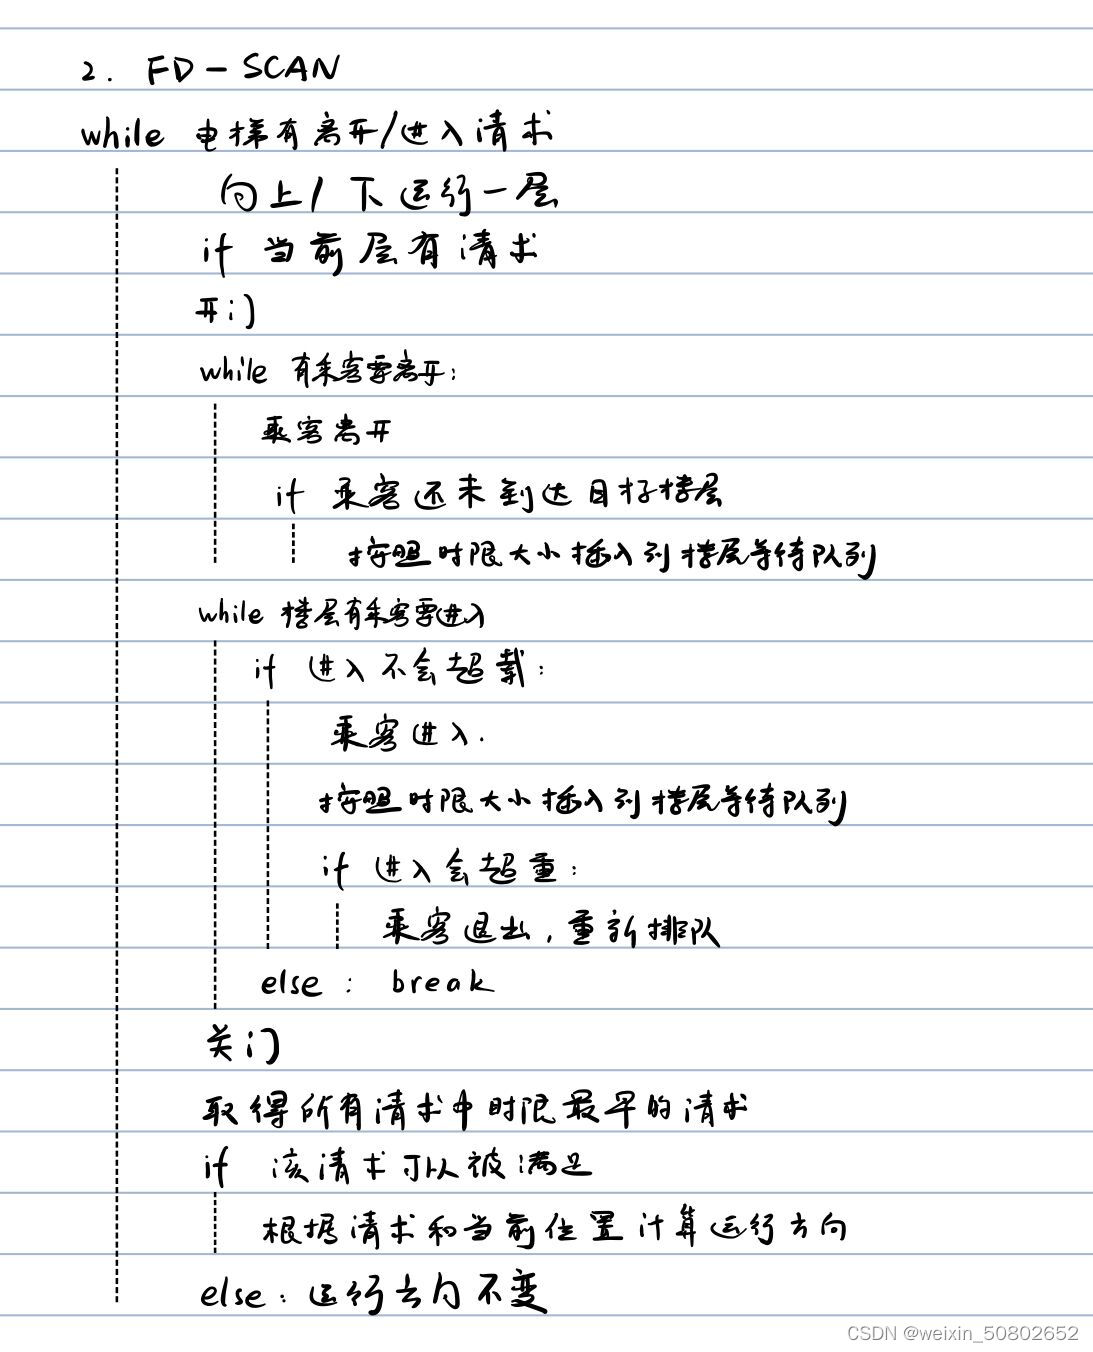 2. FD-SCAN
while 电梯有离开/进入请求
向上/下运行一层
if 当前层有请求
开门
while 有乘客要离开:
乘客离开
if 乘客还未到达目标楼层
按照时限大小插入到楼层等待队列
while 楼层有乘客要进入
if 进入不会超载:
乘客进入.
按照时限大小插入到楼层等待队列
if 进入会超重:
乘客退出,重新排队
else: break
关门
取得所有请求中时限最早的请求
if 该请求可以被满足
根据请求和当前位置计算运行方向
else: 运行方向不变
CSDN @weixin_50802652